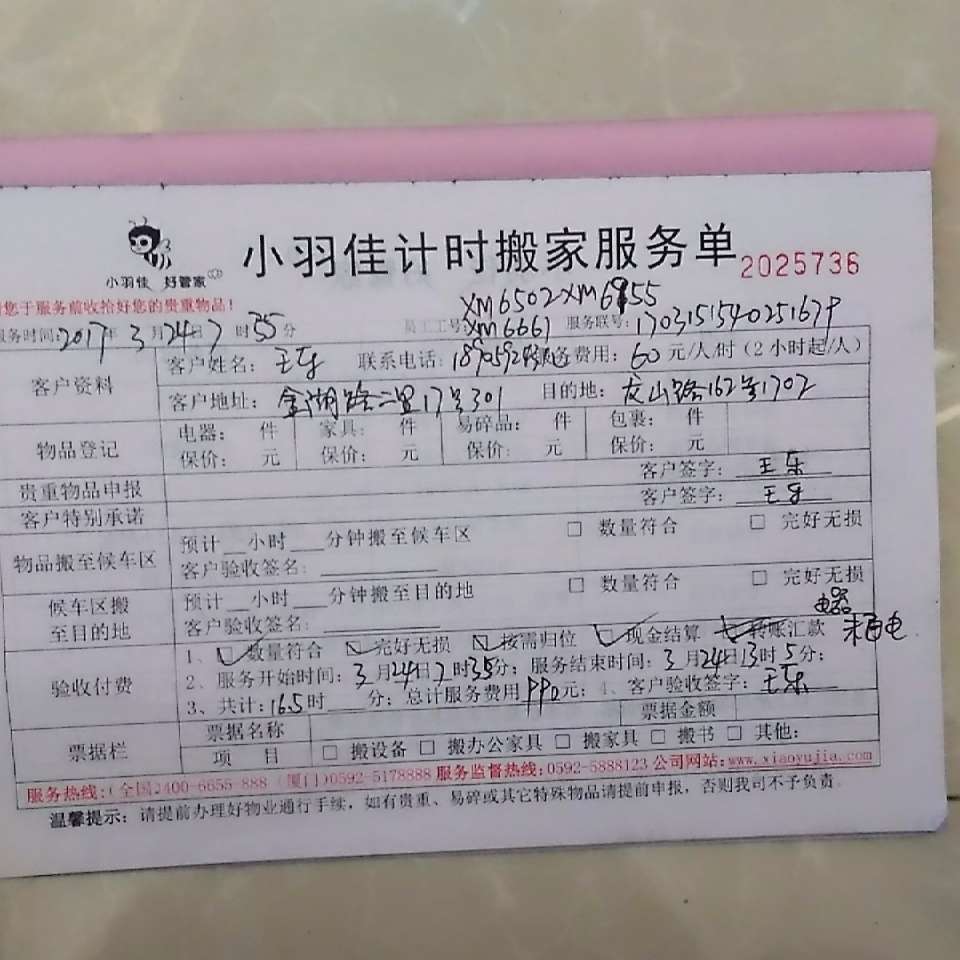 小羽佳 好管家
小羽佳计时搬家服务单 2025736
您于服务前收拾好您的贵重物品！
XM6502 XM6955
服务时间:2017年3月24日7时35分 员工工号: XM6661 服务联号: 170315154025167
客户资料 客户姓名: 王乐 联系电话: 务费用: 60元/人/时（2小时起/人）
客户地址: 金湖路二里17号301 目的地: 龙山路162号1702
物品登记 电器: 件 家具: 件 易碎品: 件 包裹: 件
保价: 元 保价: 元 保价: 元 保价: 元
贵重物品申报 客户签字: 王乐
客户特别承诺 客户签字: 王乐
物品搬至候车区 预计__小时___分钟搬至候车区 □ 数量符合 □ 完好无损
客户验收签名:
候车区搬至目的地 预计__小时___分钟搬至目的地 □ 数量符合 □ 完好无损
客户验收签名: 电器
验收付费 1、☑数量符合 ☑完好无损 ☑按需归位 ☑现金结算 ☑转账汇款 未百电
2、服务开始时间: 3月24日7时35分; 服务结束时间: 3月24日13时5分;
3、共计: 16.5时____分; 总计服务费用990元; 4、客户验收签字: 王乐
票据栏 票据名称 票据金额
项 目 □ 搬设备 □ 搬办公家具 □ 搬家具 □ 搬书 □ 其他:
服务热线:(全国)400-6655-888 (厦门)0592-5178888 服务监督热线:0592-5888123 公司网站:www.xiaoyujia.com
温馨提示: 请提前办理好物业通行手续，如有贵重、易碎或其它特殊物品请提前申报，否则我司不予负责。